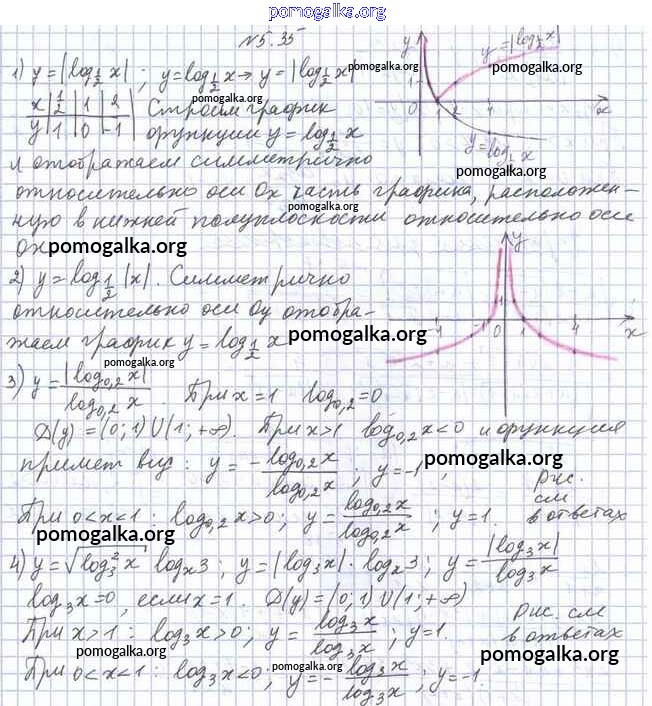 pomogalka.org
№5.35
1) y = |log_{1/2} x| ; y = log_{1/2} x → y = |log_{1/2} x|
pomogalka.org
x | 1/2 | 1 | 2 | Строим график
y | 1 | 0 | -1 | функции y = log_{1/2} x
pomogalka.org
и отображаем симметрично
относительно оси Ox часть графика, расположен-
pomogalka.org
ную в нижней полуплоскости относительно оси
Ox pomogalka.org
y y = |log_{1/2} x|
1
pomogalka.org
0 2 4 x
y = log_{1/2} x
pomogalka.org
2) y = log_{1/2} |x|. Симметрично
относительно оси Oy отобра-
жаем график y = log_{1/2} x pomogalka.org
y
1
-4 -1 0 1 4 x
pomogalka.org
3) y = |log_{0,2} x| / log_{0,2} x . При x = 1 log_{0,2} = 0
D(y) = (0; 1) ∪ (1; +∞). При x > 1 log_{0,2} x < 0 и функция
примет вид : y = - log_{0,2} x / log_{0,2} x ; y = -1 ; pomogalka.org
При 0 < x < 1 : log_{0,2} x > 0 ; y = log_{0,2} x / log_{0,2} x ; y = 1.
Рис.
см
в ответах
pomogalka.org
4) y = √(log_3^2 x) log_x 3 ; y = |log_3 x| · log_x 3 ; y = |log_3 x| / log_3 x
pomogalka.org
log_3 x = 0, если x = 1. D(y) = (0; 1) ∪ (1; +∞)
При x > 1 : log_3 x > 0 ; y = log_3 x / log_3 x ; y = 1.
Рис. см
в ответах
pomogalka.org
При 0 < x < 1 : log_3 x < 0 ; y = - log_3 x / log_3 x ; y = -1.
pomogalka.org
pomogalka.org